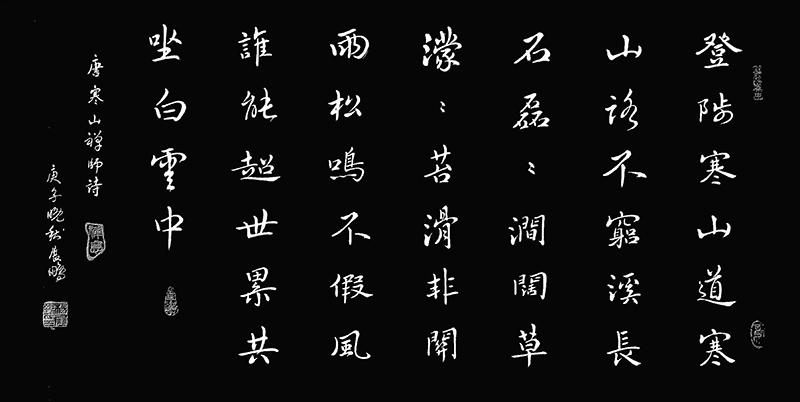 登陟寒山道寒
山路不窮溪長
石磊〻澗闊草
濛〻苔滑非關
雨松鳴不假風
誰能超世累共
坐白雲中
唐寒山禅師詩
庚子晚秋